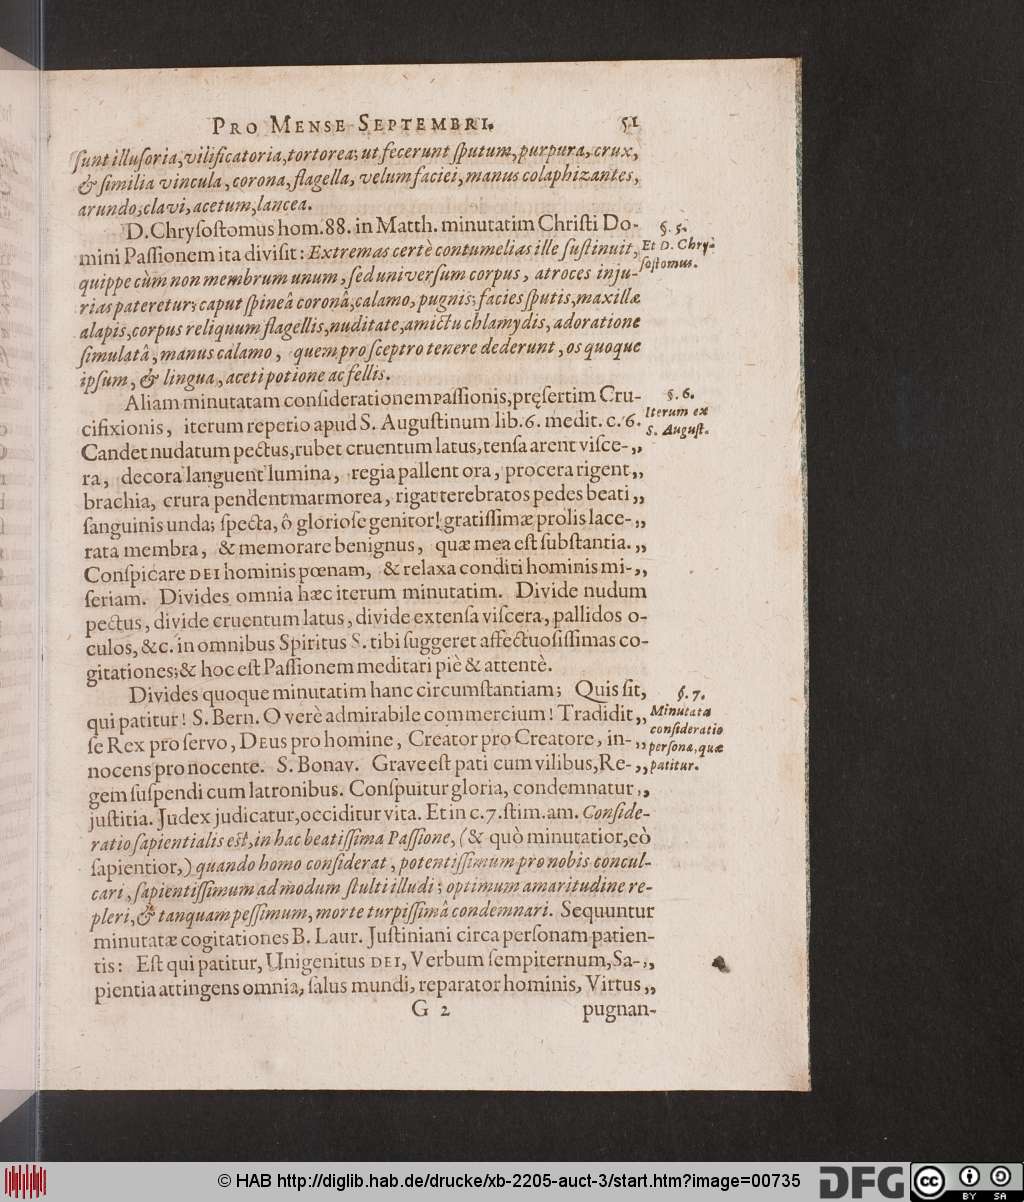 PRO MENSE SEPTEMBRI. 51
ſunt illuſoria, vilificatoria, tortorea; ut fecerunt ſputum, purpura, crux,
& ſimilia vincula, corona, flagella, velum faciei, manus colaphizantes,
arundo; clavi, acetum, lancea.
D. Chryſoſtomus hom. 88. in Matth. minutatim Chriſti Do-
mini Paſſionem ita diviſit: Extremas certè contumelias ille ſuſtinuit,
quippe cùm non membrum unum, ſed univerſum corpus, atroces inju-
rias pateretur; caput ſpineâ coronâ, calamo, pugnis; facies ſputis, maxillæ
alapis, corpus reliquum flagellis, nuditate, amictu chlamydis, adoratione
ſimulatâ, manus calamo, quem pro ſceptro tenere dederunt, os quoque
ipſum, & lingua, aceti potione ac fellis.
§. 5.
Et D. Chry-
ſoſtomus.
Aliam minutatam conſiderationem paſſionis, pręſertim Cru-
cifixionis, iterum reperio apud S. Auguſtinum lib. 6. medit. c. 6.
Candet nudatum pectus, rubet cruentum latus, tenſa arent viſce- „
ra, decora languent lumina, regia pallent ora, procera rigent „
brachia, crura pendent marmorea, rigat terebratos pedes beati „
ſanguinis unda; ſpecta, ô glorioſe genitor! gratiſſimæ prolis lace- „
rata membra, & memorare benignus, quæ mea eſt ſubſtantia. „
Conſpicare DEI hominis pœnam, & relaxa conditi hominis mi- „
ſeriam. Divides omnia hæc iterum minutatim. Divide nudum
pectus, divide cruentum latus, divide extenſa viſcera, pallidos o-
culos, &c. in omnibus Spiritus S. tibi ſuggeret affectuoſiſſimas co-
gitationes; & hoc eſt Paſſionem meditari piè & attentè.
§. 6.
Iterum ex
S. Auguſt.
Divides quoque minutatim hanc circumſtantiam; Quis ſit,
qui patitur! S. Bern. O verè admirabile commercium! Tradidit „
ſe Rex pro ſervo, DEUS pro homine, Creator pro Creatore, in- „
nocens pro nocente. S. Bonav. Grave eſt pati cum vilibus, Re- „
gem ſuſpendi cum latronibus. Conſpuitur gloria, condemnatur „
juſtitia. Judex judicatur, occiditur vita. Et in c. 7. ſtim. am. Conſide-
ratio ſapientialis eſt, in hac beatiſſima Paſſione, (& quò minutatior, eò
ſapientior,) quando homo conſiderat, potentiſſimum pro nobis concul-
cari, ſapientiſſimum ad modum ſtulti illudi; optimum amaritudine re-
pleri, & tanquam peſſimum, morte turpiſſimâ condemnari. Sequuntur
minutatæ cogitationes B. Laur. Juſtiniani circa perſonam patien-
tis: Eſt qui patitur, Unigenitus DEI, Verbum ſempiternum, Sa- „
pientia attingens omnia, ſalus mundi, reparator hominis, Virtus „
§. 7.
Minutata
conſideratio
perſonæ, quæ
patitur.
G 2 pugnan-
© HAB http://diglib.hab.de/drucke/xb-2205-auct-3/start.htm?image=00735
DFG
cc BY SA